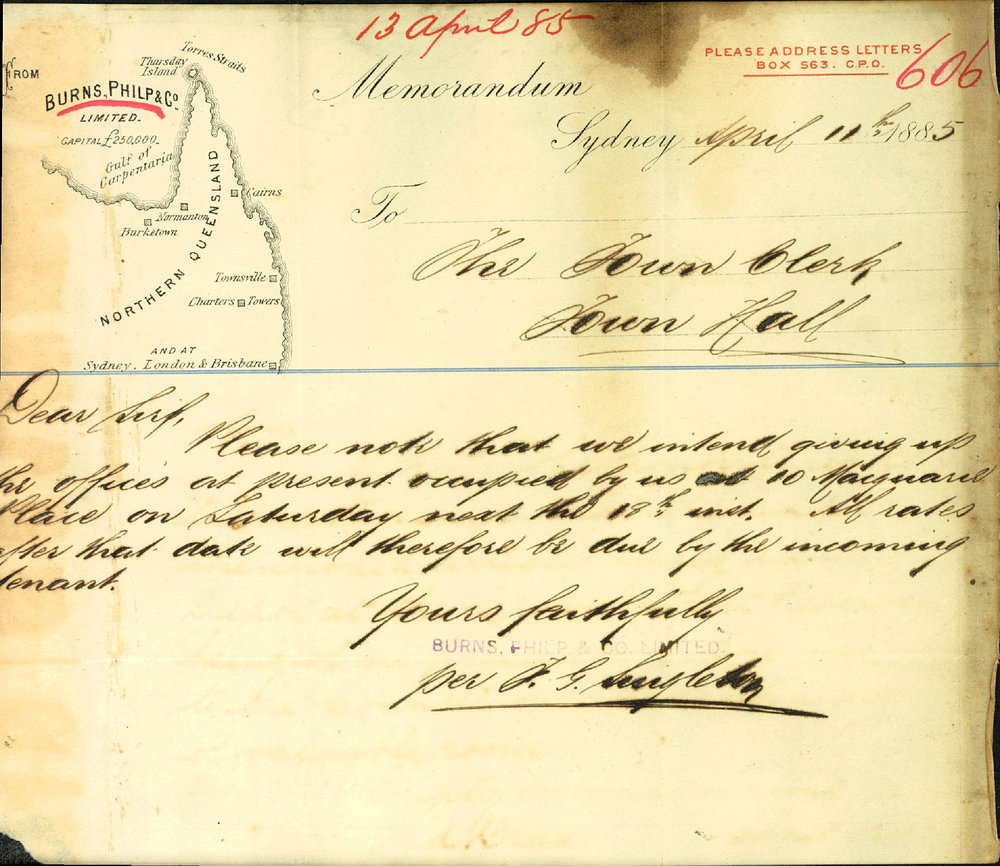 13 April 85
PLEASE ADDRESS LETTERS
BOX 563. G.P.O.
606
FROM
BURNS, PHILP & Co.
LIMITED.
CAPITAL £250,000.
Torres Straits
Thursday
Island
Gulf of
Carpentaria
Cairns
Normanton
Burketown
NORTHERN QUEENSLAND
Townsville
Charters Towers
AND AT
Sydney, London & Brisbane
Memorandum
Sydney April 11th 1885
To
The Town Clerk
Town Hall
Dear Sir,
Please note that we intend giving up
the offices at present occupied by us at 10 Macquarie
Place on Saturday next the 18th inst. All rates
after that date will therefore be due by the incoming
tenant.
Yours faithfully
BURNS, PHILP & CO. LIMITED.
per F. G. Singleton